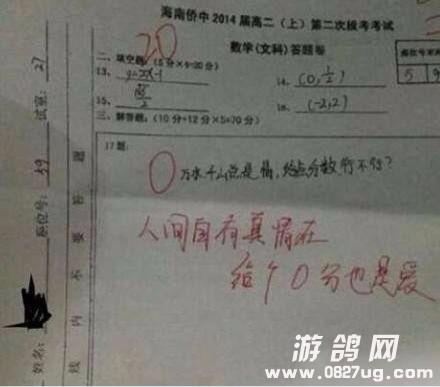 海南侨中2014届高二(上)第二次段考考试
数学(文科)答题卷
20
二、填空题:(5分×4=20分)
13、y=2x-1
14、(0,1/2)
15、
16、(-2,2)
三、解答题:(10分+12分×5=70分)
17题:
0
万水千山总是情,给点分数行不行?
人间自有真情在
给个0分也是爱
试室:27
座位号:59
姓名:
线内不要答题
5
游鸽网
www.0827ug.com